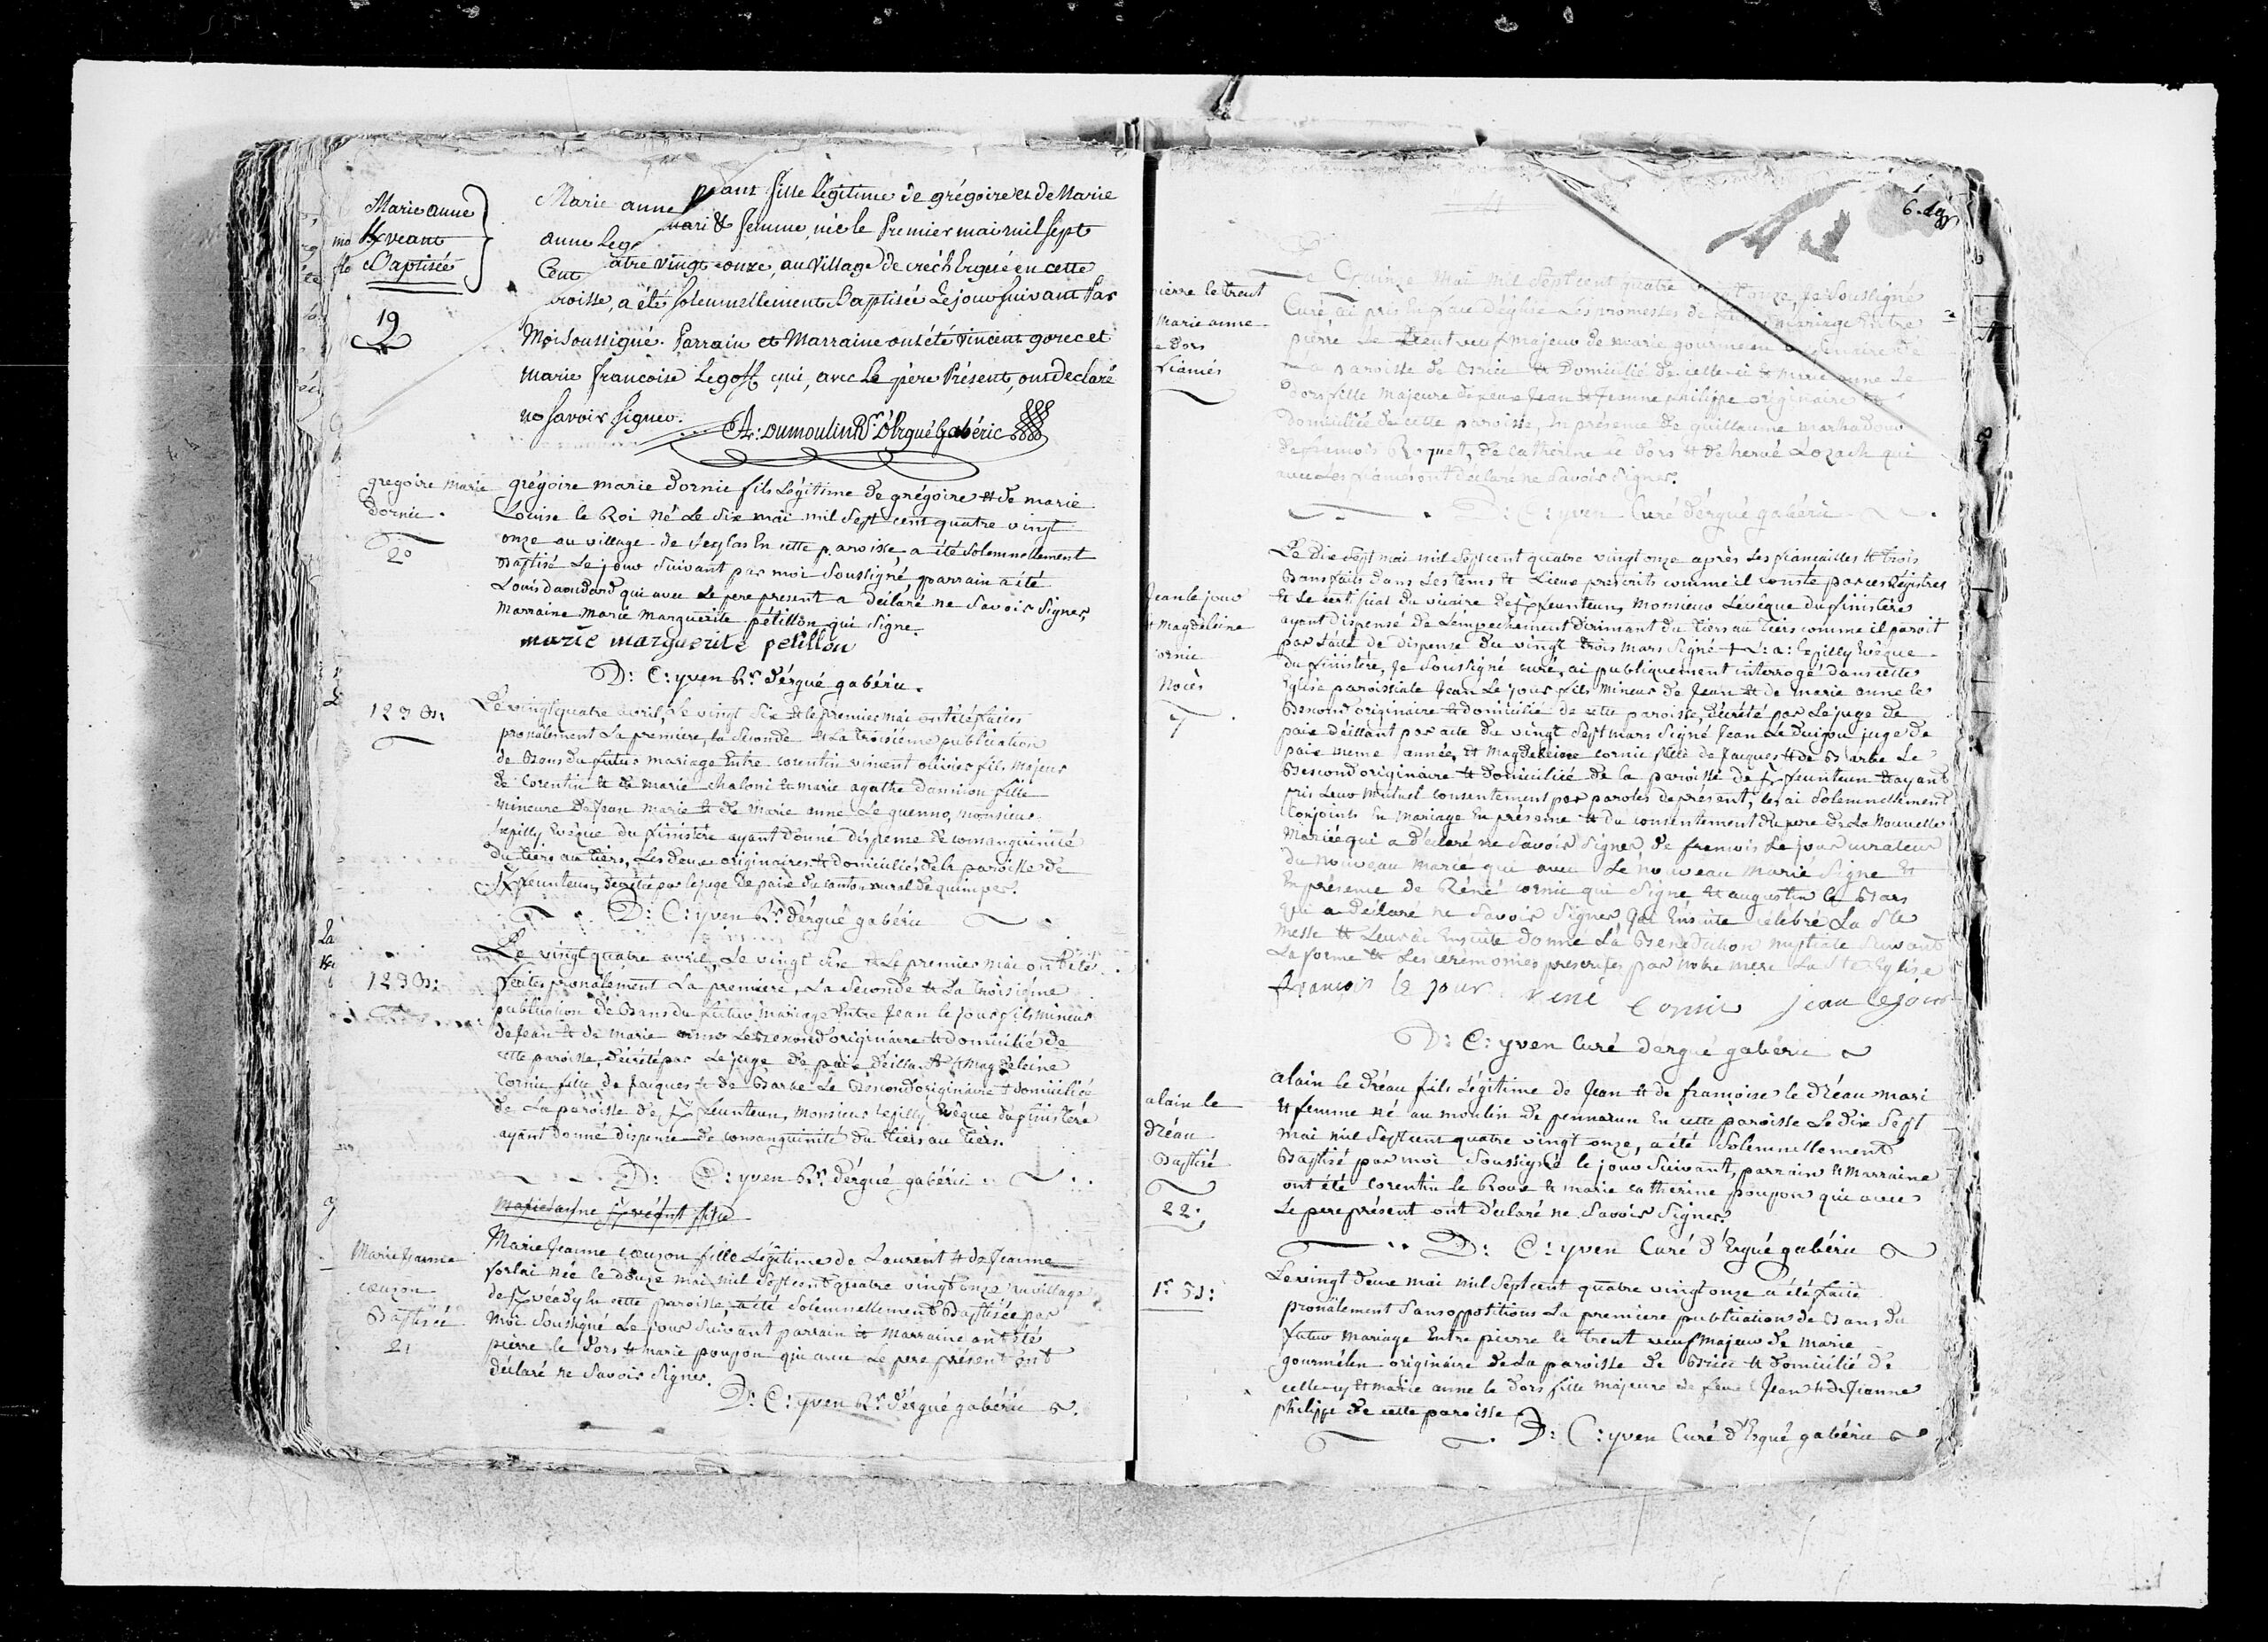 Marie anne
veant
Baptisée
19
Marie anne veant fille légitime de grégoire et de Marie
anne Lego mari & femme, née le Premier mai mil sept
Cent atre vingt onze, au Village de créch Ergué en cette
roisse, a été solemnellement Baptisée Le jour suivant Par
Moi Soussigné. Parrain et Marraine ont été vincent gorec et
marie francoise Legoff qui, avec Le père Présent, ont Declaré
ne savoir signer.
A: Dumoulin Rr. d'Ergué Gabéric
gregoire marie
Cornic.
20
grégoire marie Cornic fils Légitime de grégoire & de marie
Louise le Roi né Le Six mai mil Sept cent quatre vingt
onze au village de En cette paroisse, a été Solemnellement
Baptisé Le jour Suivant par moi Soussigné, parrain a été
Louis daoudard qui avec Le pere present a déclaré ne Savoir Signer,
Marraine Marie Marguerite petillon qui Signe.
marie marguerite petillon
D: C: yven Cr. d'érgué gabéric.
1 2 3 B:
Le vingt quatre avril, Le vingt Six & le premier mai ont été faites
pronalement La premiere, la Seconde & La troisiéme publication
de Bans du futur mariage Entre Corentin vincent olivier fils Majeur
de Corentin & de marie chaloni & marie agathe dannion fille
mineure de Jean marie & de Marie anne Le guenno, monsieur
Expilly Evêque du finistère ayant donné dispense de consanguinité
du tiers au tiers, Les deux originaires & domiciliés de la paroisse de
feunteun, décrété par le juge de paix du canton rural de quimper.
D: C: yven Cr. d'érgué gabéric
1 2 3 B:
Le vingt quatre avril, Le vingt Six & Le premier mai ont été
faites pronalement La premiere, La Seconde & La troisiéme
publication de Bans du futur mariage Entre Jean le jour fils mineur
de Jean & de marie anne Le Bescond originaire & domicilié de
cette paroisse, décrété par Le juge de paix d'éilliant & Magdeleine
Cornic fille de Jacques & de Barbe Le Bescond originaire & domiciliée
de La paroisse de feunteun, Monsieur Expilly Evêque du finistère
ayant donné dispense de consanguinité du tiers au tiers.
D: C: yven Cr. d'érgué gabéric
Marie Jeanne
couzon
Baptisée
21
Marie Jeanne couzon fille Légitime de Laurent & de Jeanne
forlai née le douze mai mil Sept cent quatre vingt onze au village
de En cette paroisse, a été Solemnellement Baptisée par
Moi Soussigné Le jour Suivant parrain & Marraine ont été
pierre le Dors & marie poupon qui avec Le pere présent ont
déclaré ne Savoir Signer.
D: C: yven Cr. d'érgué gabéric
ierre le treut
Marie anne
e Dors
fiancés
Le Quinze Mai Mil Sept cent quatre vingt onze, Je Soussigné
Curé, ai pris En face d'église Les promesses de mariage Entre
pierre Le treut veuf majeur de marie gourmelen originaire de
La paroisse de Briec & domicilié de celle-ci & marie anne Le
Dors fille majeure de feus Jean & Jeanne philippe originaire &
domiciliée de cette paroisse, En présence de guillaume marhadour
de francois Roquet, de catherine Le Dors & de hervé Lozach qui
avec Les fiancés ont déclaré ne Savoir Signer.
D: C: yven Curé d'érgué gabéric
Jean le jour
& Magdeleine
ornic
Noces
7
Le Dix Sept mai mil Sept cent quatre vingt onze après les fiançailles & trois
Bans faits dans Les tems & Lieux prescrits comme il conste par ces Régistres
& Le certificat du vicaire de feunteun, Monsieur L'évêque du finistère
ayant dispensé de L'émpechement dirimant du tiers au tiers comme il paroit
par L'acte de dispense du vingt trois mars Signé + L: a: Expilly Evêque
du finistère, Je Soussigné curé, ai publiquement interrogé dans cette
Eglise paroissiale Jean Le jour fils mineur de Jean & de marie anne le
Bescond originaire & domicilié de cette paroisse, décrété par Le juge de
paix d'éillant par acte du vingt Sept mars Signé Jean Le duigou juge de
paix meme année, & Magdeleine cornic fille de Jacques & de Barbe Le
Bescond originaire & domiciliée de la paroisse de feunteun & ayant
pris Leur Mutuel consentement par paroles de présent, les ai Solemnellement
conjoints En mariage En présence & du consentement du pere de La Nouvelle
Mariée qui a déclaré ne Savoir Signer de francois Le jour curateur
du Nouveau marié qui avec Le Nouveau Marié Signe &
En présence de Réné cornic qui Signe & augustin le Bars
qui a déclaré ne Savoir Signer J'ai Ensuite célébré La Ste
Messe & Leur ai Ensuite donné La Benediction nuptiale Suivant
La forme & Les cérémonies prescrites par Notre Mere La Ste Eglise
françois le jour René Cornic jean le jour
D: C: yven Curé d'ergué gabéric
alain le
dréau
Baptisé
22.
alain le dréau fils Légitime de Jean & de francoise le dréau mari
& femme né au moulin de pennarun En cette paroisse Le dix Sept
mai mil Sept cent quatre vingt onze, a été Solemnellement
Baptisé par moi Soussigné le jour Suivant, parrain & Marraine
ont été Corentin le Roux & marie catherine poupon qui avec
Le pere présent ont déclaré ne Savoir Signer.
D: C: yven Curé d'Ergué gabéric
1r. B:
Le vingt deux mai mil Sept cent quatre vingt onze a été faite
pronalement Sans oppositions La premiere publication de Bans du
futur mariage Entre pierre le treut veuf majeur de Marie
gourmélen originaire de La paroisse de Briec & domicilié de
celle-cy & marie anne le Dors fille majeure de feus Jean & de Jeanne
philippe de cette paroisse
D: C: yven Curé d'Ergué gabéric